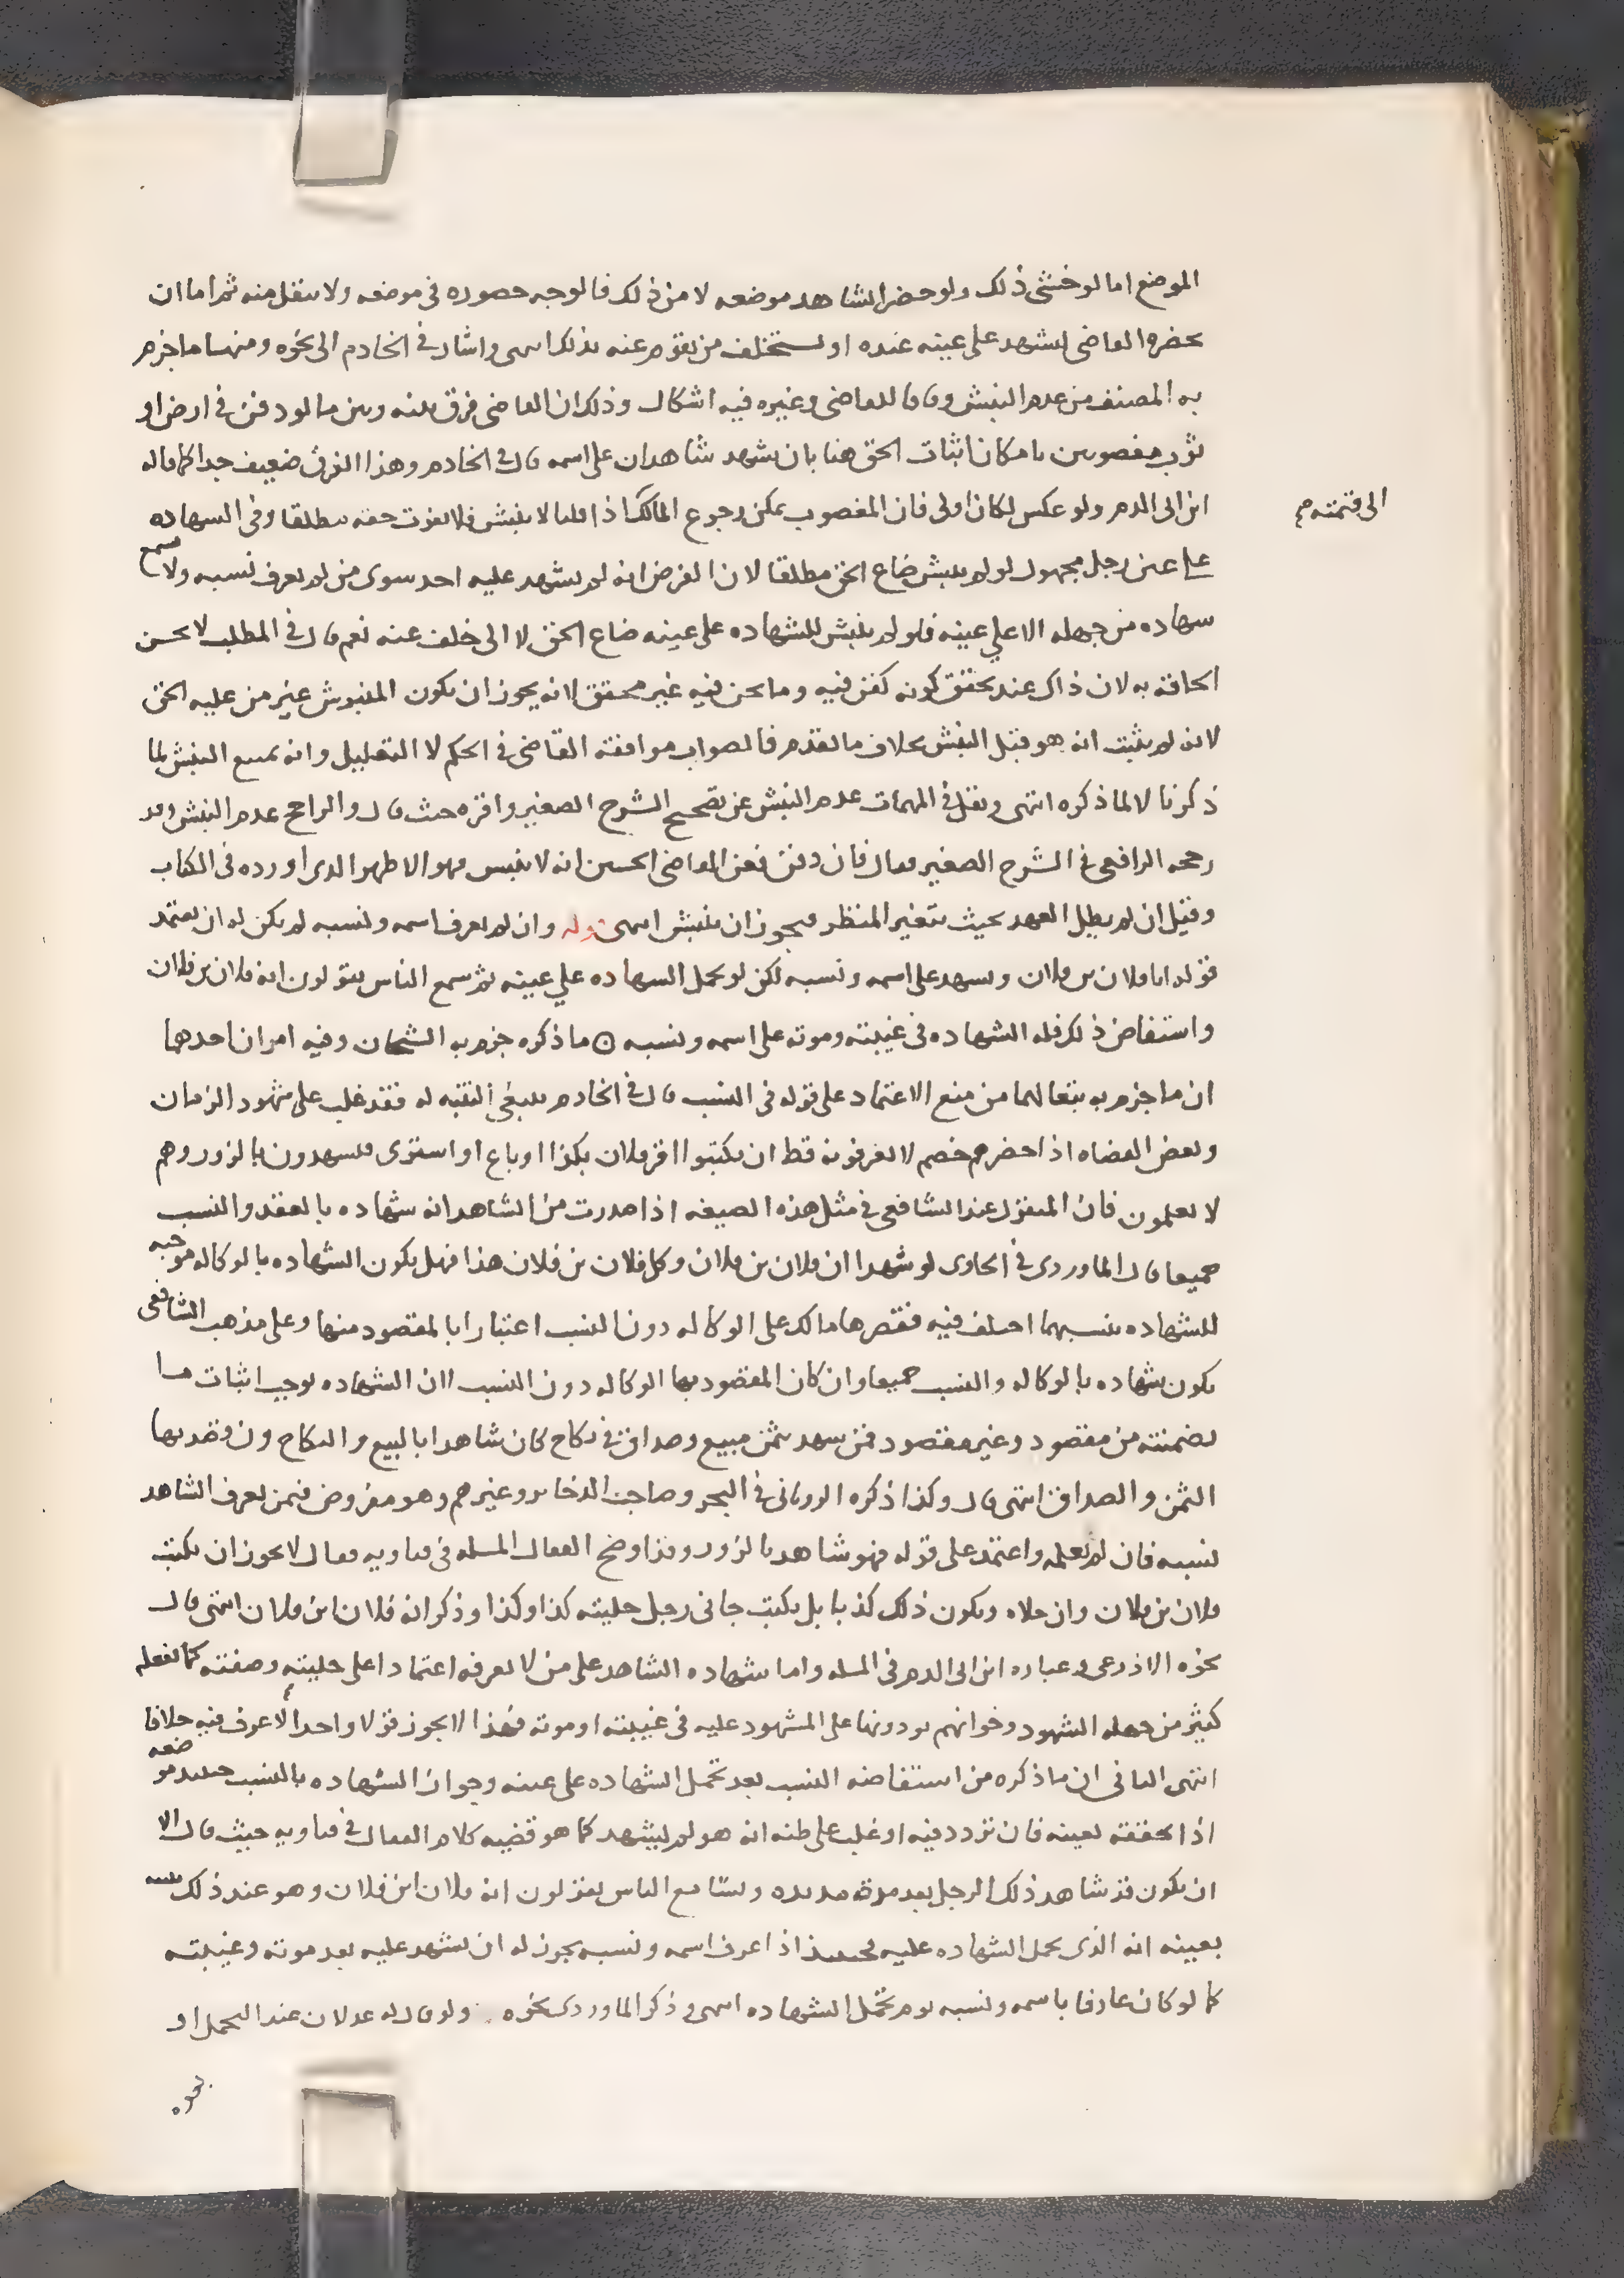 الموضع اما لو خشي ذلك ولو حضر الشاهد موضعه لا من ذلك فالوجه حضوره في موضعه ولا ينقل منه ثم اما ان
يحضر القاضي ليشهد على عينه عنده او يستخلف من يقوم عنه بذلك انتهى واشار في الخادم الى نحوه ومنها ما جزم
به المصنف من عدم النبش وفاقا للقاضي وغيره فيه اشكال وذلك ان القاضي فرق بينه وبين ما لو دفن في ارض او
ثوب مغصوبين بامكان اثبات الحق هنا بان يشهد شاهدان على اسمه قال في الخادم وهذا الفرق ضعيف جدا كما قاله
ابن ابي الدم ولو عكس لكان اولى فان المغصوب يمكن رجوع المالك اذا قلنا لا ينبش فلا يفوت حقه مطلقا وفي الشهاده
الى قيمته صح
على عين رجل مجهول لو لم ينبش ضاع الحق مطلقا لان الفرض انه لم يشهد عليه احد سوى من لم يعرف نسبه ولا تسمع
شهاده من جهله الا على عينه فلو لم ينبش للشهاده على عينه ضاع الحق لا الى خلف عنه نعم قال في المطلب لا يحسن
الحاقه به لان ذاك عند تحقق كونه كفن فيه وما نحن فيه غير محقق لانه يجوز ان يكون المنبوش غير من عليه الحق
لانه لم يثبت انه هو قبل النبش بخلاف ما تقدم فالصواب موافقة القاضي في الحكم لا التعليل وانه يمتنع النبش لما
ذكرنا لا لما ذكره انتهى ونقل في المهمات عدم النبش عن تصحيح الشرح الصغير واقره حيث قال والراجح عدم النبش وقد
رجحه الرافعي في الشرح الصغير فقال فان دفن فعن القاضي الحسين انه لا ينبش وهو الاظهر الذي اورده في الكتاب
وقيل ان لم يطل العهد بحيث يتغير المنظر فيجوز ان ينبش انتهى قوله وان لم يعرف اسمه ونسبه لم يكن له ان يعتمد
قوله انا فلان بن فلان ويشهد على اسمه ونسبه لكن لو تحمل الشهاده على عينه ثم سمع الناس يقولون انه فلان بن فلان
واستفاض ذلك فله الشهاده في غيبته وموته على اسمه ونسبه ما ذكره جزم به الشيخان وفيه امران احدهما
ان ما جزم به تبعا لهما من منع الاعتماد على قوله في النسب قال في الخادم ينبغي التنبه له فقد غلب على شهود الزمان
وبعض القضاه اذا حضرهم خصم لا يعرفونه قط ان يكتبوا اقر فلان بكذا او باع او اشترى فيشهدون بالزور وهم
لا يعلمون فان المنقول عند الشافعي في مثل هذه الصيغه اذا صدرت من الشاهد انه شهاده بالعقد والنسب
جميعا قال الماوردي في الحاوي لو شهدا ان فلان بن فلان وكل فلان بن فلان هذا فهل يكون الشهاده بالوكاله موجبه
للشهاده بنسبهما اختلف فيه فقصرها مالك على الوكاله دون النسب اعتبارا بالمقصود منها وعلى مذهب الشافعي
يكون شهاده بالوكاله والنسب جميعا وان كان المقصود بها الوكاله دون النسب لان الشهاده توجب اثبات ما
تضمنته من مقصود وغير مقصود فمن شهد بثمن مبيع وصداق في نكاح كان شاهدا بالبيع والنكاح وان قصد بها
الثمن والصداق انتهى قال وكذا ذكره الروياني في البحر وصاحب الذخاير وغيرهم وهو مفروض فيمن يعرف الشاهد
نسبه فان لم يعلمه واعتمد على قوله فهو شاهد بالزور وقد اوضح القفال المسله في فتاويه فقال لا يجوز ان يكتب
فلان بن فلان وان حلاه ويكون ذلك كذبا بل يكتب جاني رجل حليته كذا وكذا وذكر انه فلان ابن فلان انتهى قال
نحوه الاذرعي وعباره ابن ابي الدم في المسله واما شهاده الشاهد على من لا يعرفه اعتمادا على حليته وصفته كما يفعله
كثير من جهله الشهود وخوانهم يودونها على المشهود عليه في غيبته او موته فهذا لا يجوز قولا واحدا لا اعرف فيه خلافا
انتهى الثاني ان ما ذكره من استفاضه النسب بعد تحمل الشهاده على عينه وجواز الشهاده بالنسب حينيذ موضعه
اذا تحققه بعينه فان تردد فيه او غلب على ظنه انه هو لم يشهد كما هو قضيه كلام القفال في فتاويه حيث قال الا
ان يكون قد شاهد ذلك الرجل بعد مدة مديده وتسامع الناس يقولون انه فلان ابن فلان وهو عند ذلك
بعينه انه الذي تحمل الشهاده عليه فحينيذ اذا عرف اسمه ونسبه يجوز له ان يشهد عليه بعد موته وغيبته
كما لو كان عارفا باسمه ونسبه يوم تحمل الشهاده انتهى وذكر الماوردي نحوه ولو قال له عدلان عند التحمل او
نحوه